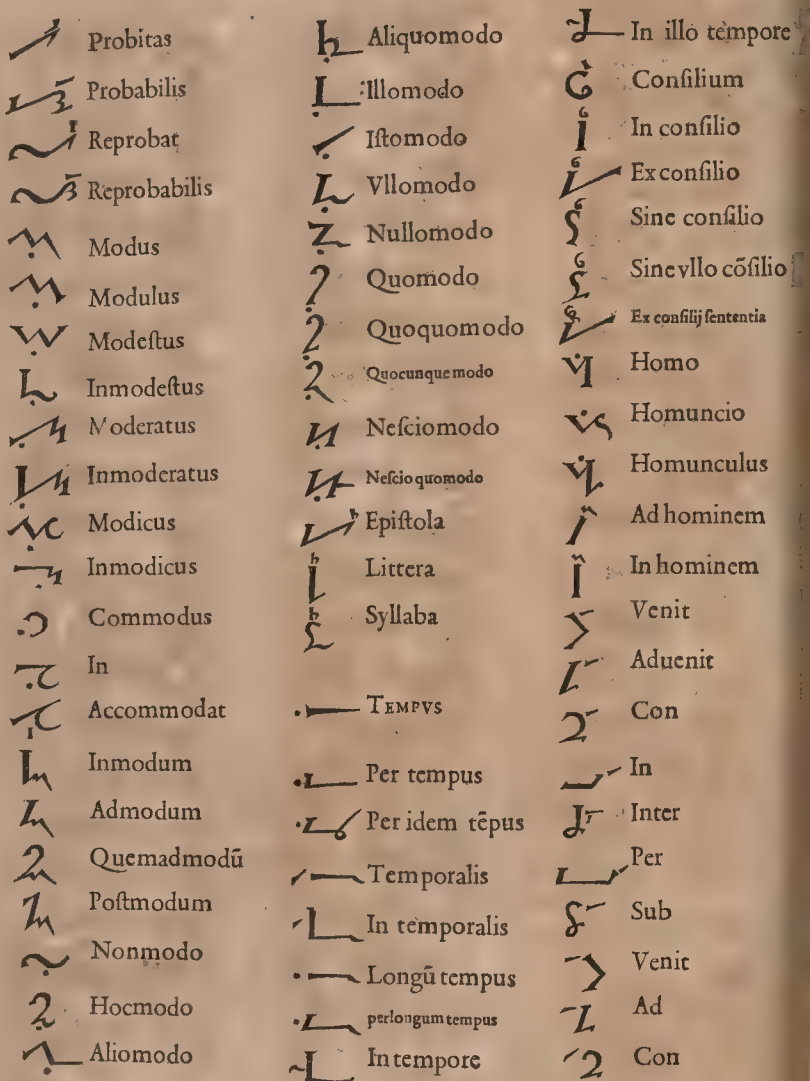 Probitas
Probabilis
Reprobat
Reprobabilis
Modus
Modulus
Modeſtus
Inmodeſtus
Moderatus
Inmoderatus
Modicus
Inmodicus
Commodus
In
Accommodat
Inmodum
Admodum
Quemadmodū
Poſtmodum
Nonmodo
Hocmodo
Aliomodo
Aliquomodo
Illomodo
Iſtomodo
Vllomodo
Nullomodo
Quomodo
Quoquomodo
Quocunque modo
Neſciomodo
Neſcio quomodo
Epiſtola
Littera
Syllaba
TEMPVS
Per tempus
Per idem tēpus
Temporalis
In temporalis
Longū tempus
perlongum tempus
In tempore
In illo tempore
Conſilium
In conſilio
Ex conſilio
Sine conſilio
Sine vllo cōſilio
Ex conſilij ſententia
Homo
Homuncio
Homunculus
Ad hominem
In hominem
Venit
Aduenit
Con
In
Inter
Per
Sub
Venit
Ad
Con